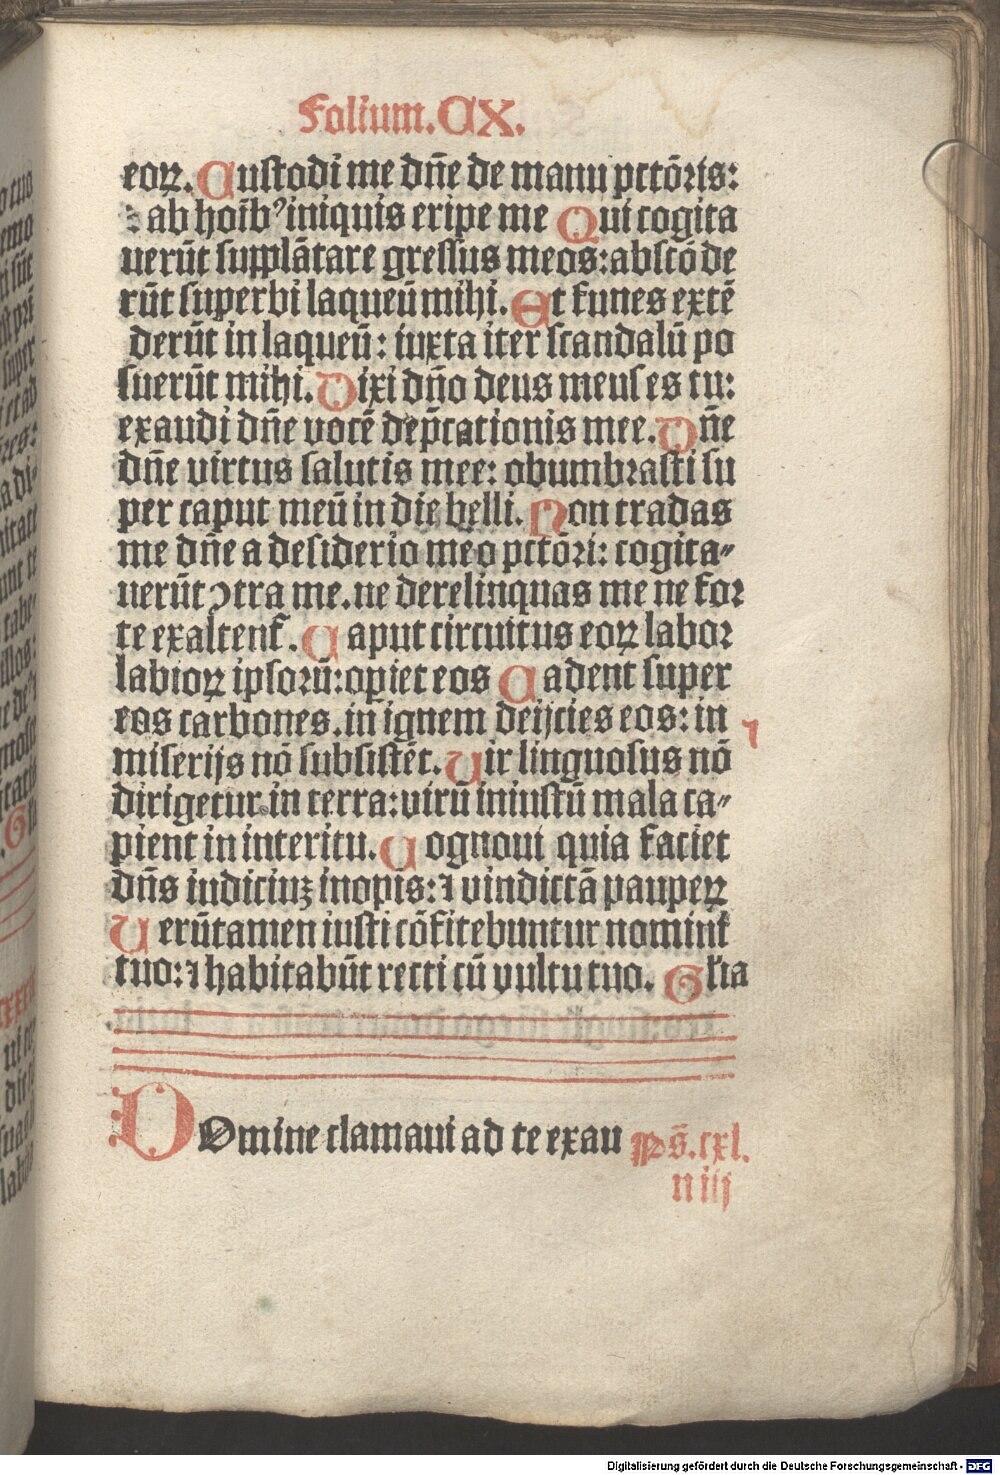 Folium. CX.
eoꝝ. Custodi me dñe de manu pctõris:
⁊ ab hoībꝰ iniquis eripe me Qui cogita
uerūt supplātare gressus meos: abscōde
rūt superbi laqueū mihi. Et funes extē
derūt in laqueū: iuxta iter scandalū po
suerūt mihi. Dixi dño deus meus es tu:
exaudi dñe vocē dep̄cationis mee. Dñe
dñe virtus salutis mee: obumbrasti su
per caput meū in die belli. Non tradas
me dñe a desiderio meo pctōri: cogita⸗
uerūt ↄtra me. ne derelinquas me ne for
te exaltent̄. Caput circuitus eoꝝ labor
labioꝝ ipsorū: opiet eos Cadent super
eos carbones. in ignem deijcies eos: in
miserijs nō subsistēt. Uir linguosus nō
dirigetur in terra: virū iniustū mala ca⸗
pient in interitu. Cognoui quia faciet
dñs iudiciuꝫ inopis: ⁊ vindictā paupeꝝ
Uerūtamen iusti cōfitebuntur nomini
tuo: ⁊ habitabūt recti cū vultu tuo. Glia
DOmine clamaui ad te exau Ps̄. cxl.
n iij
Digitalisierung gefördert durch die Deutsche Forschungsgemeinschaft - DFG